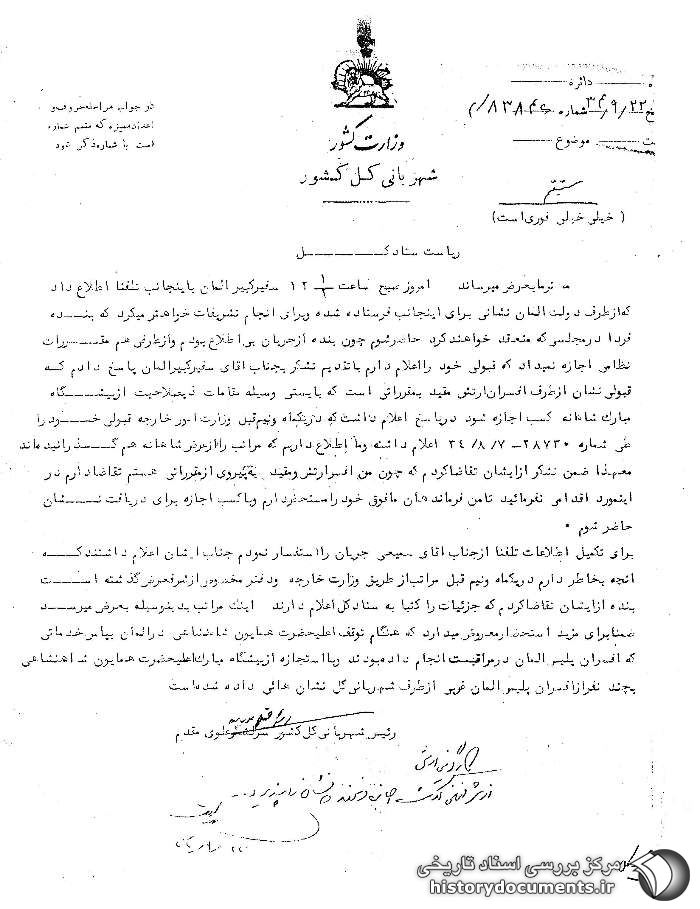 دائره
شماره ۸۳۸۴۶
موضوع
در جواب مراسله حروف و
اعداد ممیزه که متمم شماره
است با شماره ذکر شود
وزارت کشور
شهربانی کل کشور
مستقیم
( خیلی خیلی فوری است )
ریاست ستاد کــــــل
امروز صبح ساعت ۱۲ سفیر کبیر المان باینجانب تلفنا اطلاع داد
که از طرف دولت المان نشانی برای اینجانب فرستاده شده و برای انجام تشریفات خواهشمند میکرد که بنــده
فردا در مجلسی که منعقد خواهند کرد حاضر شوم چون بنده از جریان بی اطلاع بودم و از طرفی هم مقــــررات
نظامی اجازه نمیداد که قبولی خود را اعلام دارم با تقدیم تشکر بجناب اقای سفیر کبیر المان پاسخ دادم کــه
قبولی نشان از طرف افسران ارتش مقید بمقرراتی است که بایستی وسیله مقامات ذیصلاحیت از پیشـــگاه
مبارک شاهانه کسب اجازه شود در پاسخ اعلام داشت که در یکماه و نیم قبل وزارت امور خارجه قبولی خــود را
طی شماره ۲۸۷۳۰ – ۳۴/۸/۷ اعلام داشته و ما اطلاع داریم که مراتب را از عرض شاهانه هم گـــذرانیده اند
معهذا ضمن تشکر از ایشان تقاضا کردم که چون من افسر ارتش و مقید به پیروی از مقرراتی هستم تقاضا دارم در
اینمورد اقدامی نفرمائید تا من فرماندهان مافوق خود را مستحضر دارم و با کسب اجازه برای دریافت نـــشان
حاضر شوم .
برای تکمیل اطلاعات تلفنا از جناب اقای سمیعی جریان را استفسار نمودم جناب ایشان اعلام داشتند کــــه
انچه بخاطر دارم در یکماه و نیم قبل مراتب از طریق وزارت خارجه و دفتر مخصوص از شرفعرض گذشته اســـت
بنده از ایشان تقاضا کردم که جزئیات را کتبا به ستاد کل اعلام دارند اینک مراتب بدینوسیله بعرض میرســـد
ضمنا برای مزید استحضار معروض میدارد که هنگام توقف اعلیحضرت همایون شاهنشاهی در المان بپاس خدماتی
که افسران پلیس المان در مراقبت انجام داده بودند و با استجازه از پیشگاه مبارک اعلیحضرت همایون شاهنشاهی
بچند نفر از افسران پلیس المان غربی از طرف شهربانی کل نشان هائی داده شده است
رئیس شهربانی کل کشور سرلشگر علوی مقدم
مرکز بررسی اسناد تاریخی
historydocuments.ir